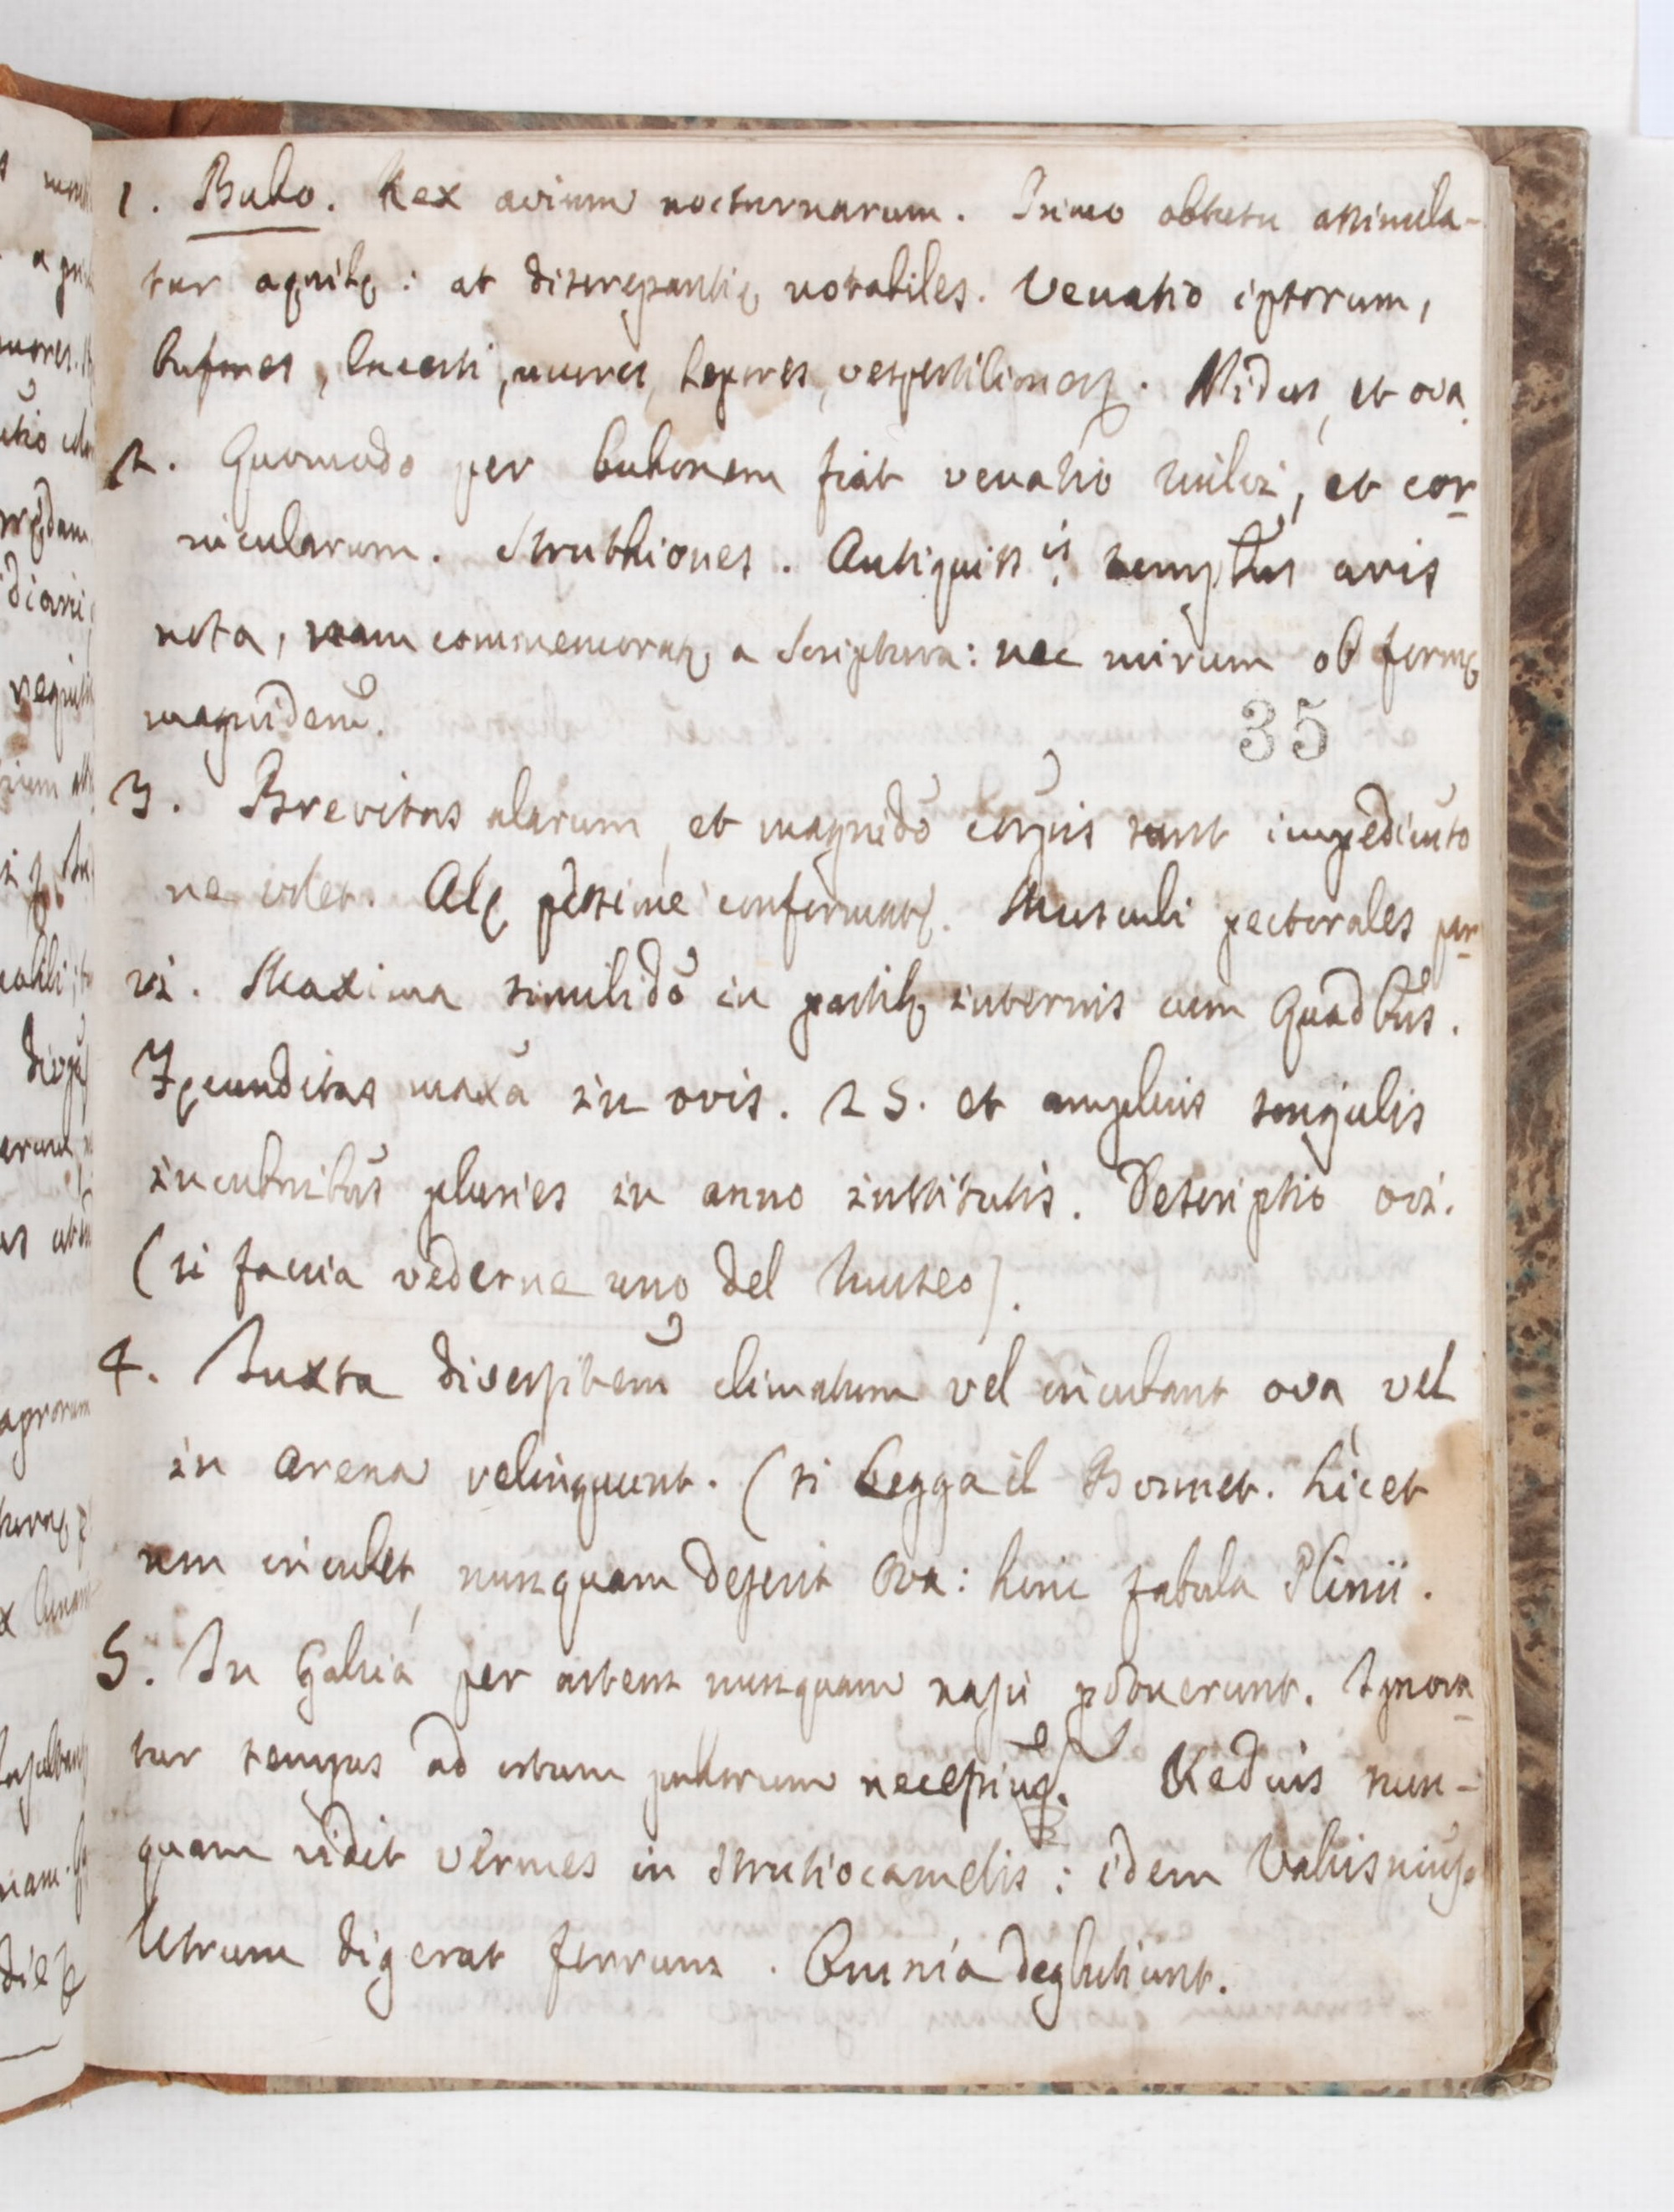 1. Bubo. Rex avium nocturnarum. Primo obtutu assimila-
tur aquilę: at discrepantię notabiles. Venatio ipsorum,
bufones, lacerti, mures, lepores, vespertiliones. Nidus, et ova.
2. Quomodo per bubonem fiat venatio milvi, et cor-
nicularum. Struthiones. Antiquiss.is tempbus avis
nota, nam commemorat a Scriptura: nec mirum ob formę
magnidem.
35
3. Brevitas alarum, et magnido corpis sunt impedimto
ne volet. Alę pessime conformatę. Musculi pectorales par-
vi. Maxima similido in partib internis cum Quadbus.
Fęcunditas maxa in ovis. 25. et amplius singulis
incubnibus pluries in anno institutis. Descriptio ovi.
(si faccia vederne uno del Museo).
4. Iuxta diversitem climatum vel incubant ova vel
in arena relinquunt. (si legga il Bomet. Licet
non incubet, nunquam deserit ova: hinc fabula Plinii.
5. In Gallia per artem nunquam nasci potuerunt. Ignora-
tur tempus ad ortum pullorum necessium. Redius nun-
quam vidit vermes in strutiocamelis: idem Valisnius.
Utrum digerat ferrum. Omnia deglutiunt.